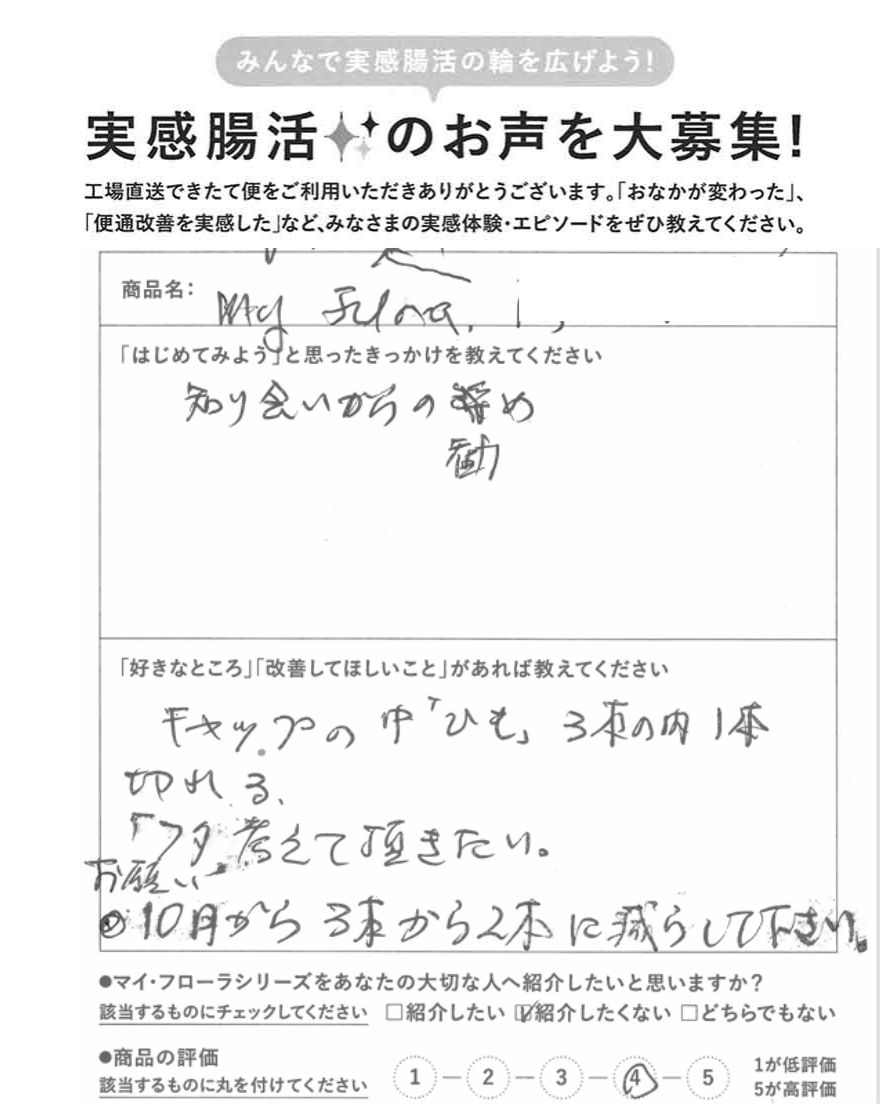 みんなで実感腸活の輪を広げよう!
実感腸活のお声を大募集!
工場直送できたて便をご利用いただきありがとうございます。「おなかが変わった」、
「便通改善を実感した」など、みなさまの実感体験・エピソードをぜひ教えてください。
商品名:
My Flora.
「はじめてみよう」と思ったきっかけを教えてください
知り会いからの め
勧
「好きなところ」「改善してほしいこと」があれば教えてください
キャップの中「ひも」3本の内1本
切れる、
「フタ」考えて頂きたい。
お願い
10月から3本から2本に減らして下さい。
●マイ・フローラシリーズをあなたの大切な人へ紹介したいと思いますか?
該当するものにチェックしてください □紹介したい ☑紹介したくない □どちらでもない
●商品の評価
該当するものに丸を付けてください 1 2 3 4 5
1が低評価
5が高評価